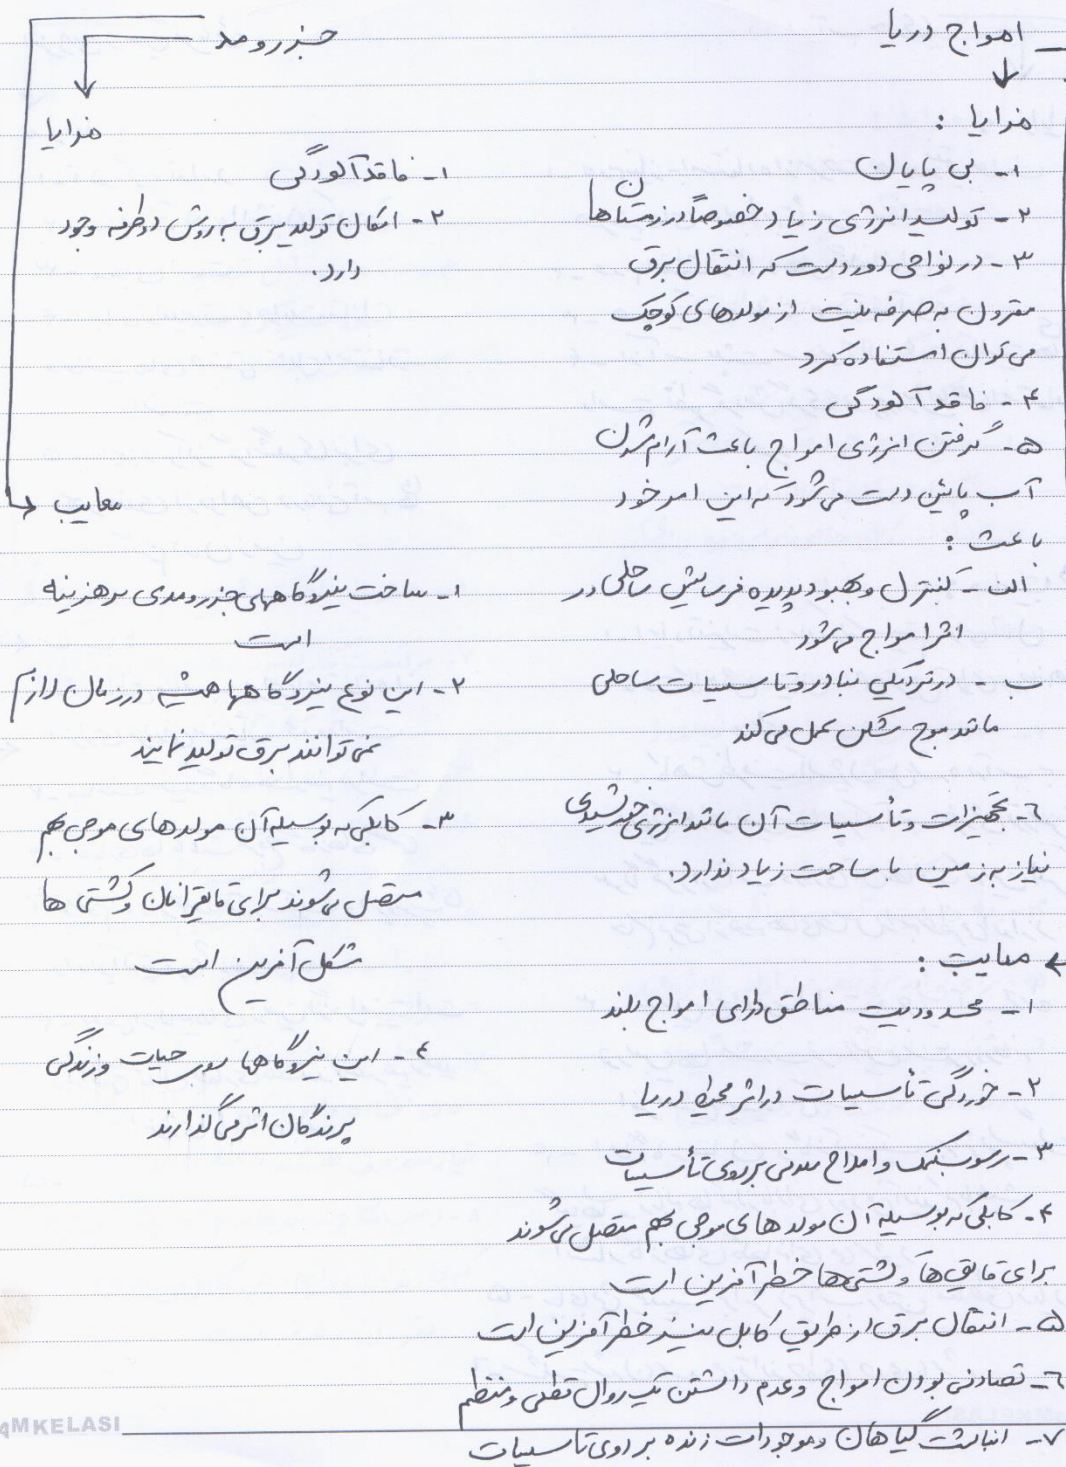 امواج دریا
مزایا :
۱- بی پایان
۲- تولید انرژی زیاد خصوصاً در زمستانها
۳- در نواحی دور دست که انتقال برق
مقرون به صرفه نیست از مولدهای کوچک
می توان استفاده کرد
۴- فاقد آلودگی
۵- گرفتن انرژی امواج باعث آرام شدن
آب پائین دست می شود که این امر خود
باعث :
الف - کنترل و بهبود پدیده فرسایش ساحلی در
اثر امواج می شود
ب - در نزدیکی بنادر و تاسیسات ساحلی
مانند موج شکن عمل می کند
۶- تجهیزات و تأسیسات آن مانند انرژی خورشیدی
نیاز به زمین با مساحت زیاد ندارد.
معایب :
۱- محدودیت مناطق دارای امواج بلند
۲- خوردگی تأسیسات در اثر محیط دریا
۳- رسوب نمک و املاح معدنی بر روی تأسیسات
۴- کابلی که بوسیله آن مولد های موجی بهم متصل می شوند
برای قایق ها و کشتی ها خطر آفرین است
۵- انتقال برق از طریق کابل نیز خطر آفرین است
۶- تصادفی بودن امواج و عدم داشتن یک روال قطعی و منظم
۷- انباشت گیاهان و موجودات زنده بر روی تاسیسات
جزر و مد
مزایا
۱- فاقد آلودگی
۲- امکان تولید برق به روش دو طرفه وجود
دارد.
معایب
۱- ساخت نیروگاههای جزر و مدی پر هزینه
است
۲- این نوع نیروگاهها همیشه در زمان لازم
نمی توانند برق تولید نمایند
۳- کابلی که بوسیله آن مولدهای موجی بهم
متصل می شوند برای قایقرانان و کشتی ها
مشکل آفرین است
۴- این نیروگاهها روی حیات و زندگی
پرندگان اثر می گذارند
AMKELASI